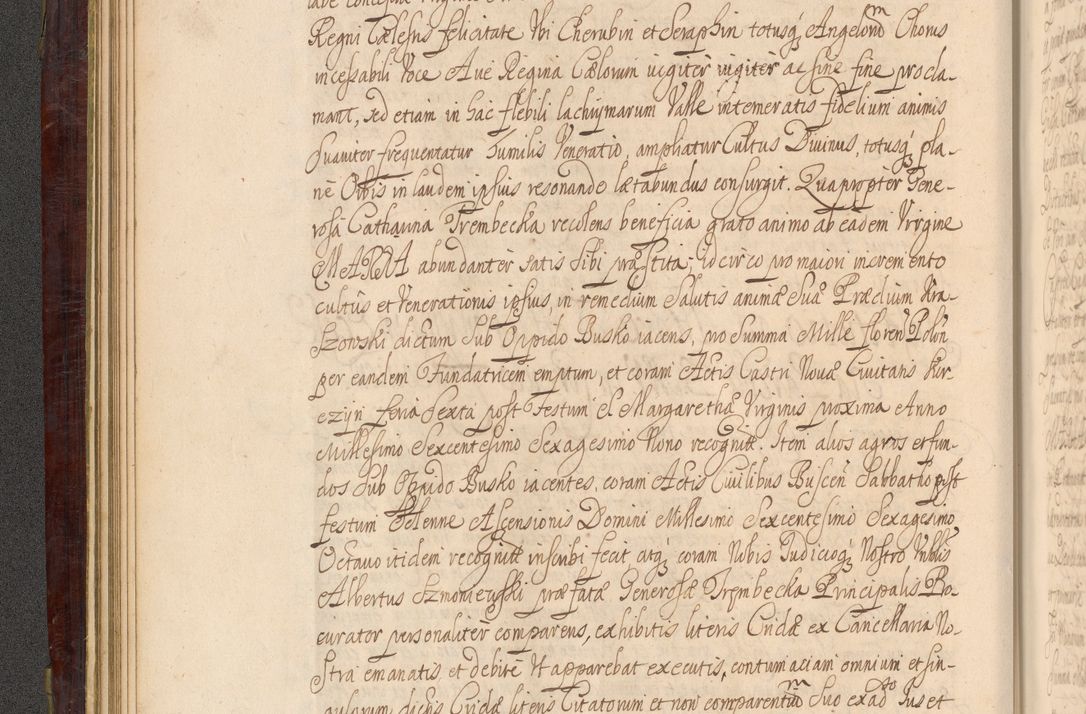 Regni Cœlestis felicitate Vbi Cherubin et Seraphin totusq3 Angelorũ Chorus
incessabili Voce Aue Regina Cœlorum iugiter iugiter ac sine fine procla-
mant, sed etiam in hac flebili lachrymarum Valle intemeratis fidelium animis
Suauiter frequentatur humilis Veneratio, ampliatur Cultus Diuinus, totusq3 pla-
ne Orbis in laudem ipsius resonando lætabundus consurgit. Quapropter Gene-
rosa Catharina Trembecka recolens beneficia grato animo ab eadem Virgine
MARIA abundanter satis Sibi præstita; idcirco pro maiori incremento
cultus et Venerationis ipsius, in remedium Salutis animæ Suæ Prædium Kra-
szowski dictum Sub Oppido Busko iacens, pro Summa Mille floren Polon
per eandem Fundatricem emptum, et coram Actis Castri Nouæ Ciuitatis Kor-
czyn feria Sexta post Festum S. Margarethæ Virginis proxima Anno
Millesimo Sexcentesimo Sexagesimo Nono recognitt. Item alios agros et fun-
dos Sub Oppido Busko iacentes, coram Actis Ciuilibus Buscen Sabbatho post
festum Solenne Ascensionis Domini Millesimo Sexcentesimo Sexagesimo
Octauo itidem recognitt inscribi fecit atq3 coram Nobis Judicioq3 Nostro Nobilis
Albertus Szmoniewski præfatæ Generosæ Trembecka Principalis Pro-
curator personaliter comparens, exhibitis literis Cridæ ex Cancellaria No-
stra emanatis et debite Vt apparebat executis, contumaciam omnium et sin-
gulorum dictis Cridæ literis Citatorum et non comparentiũ Suo ex ad Jus et